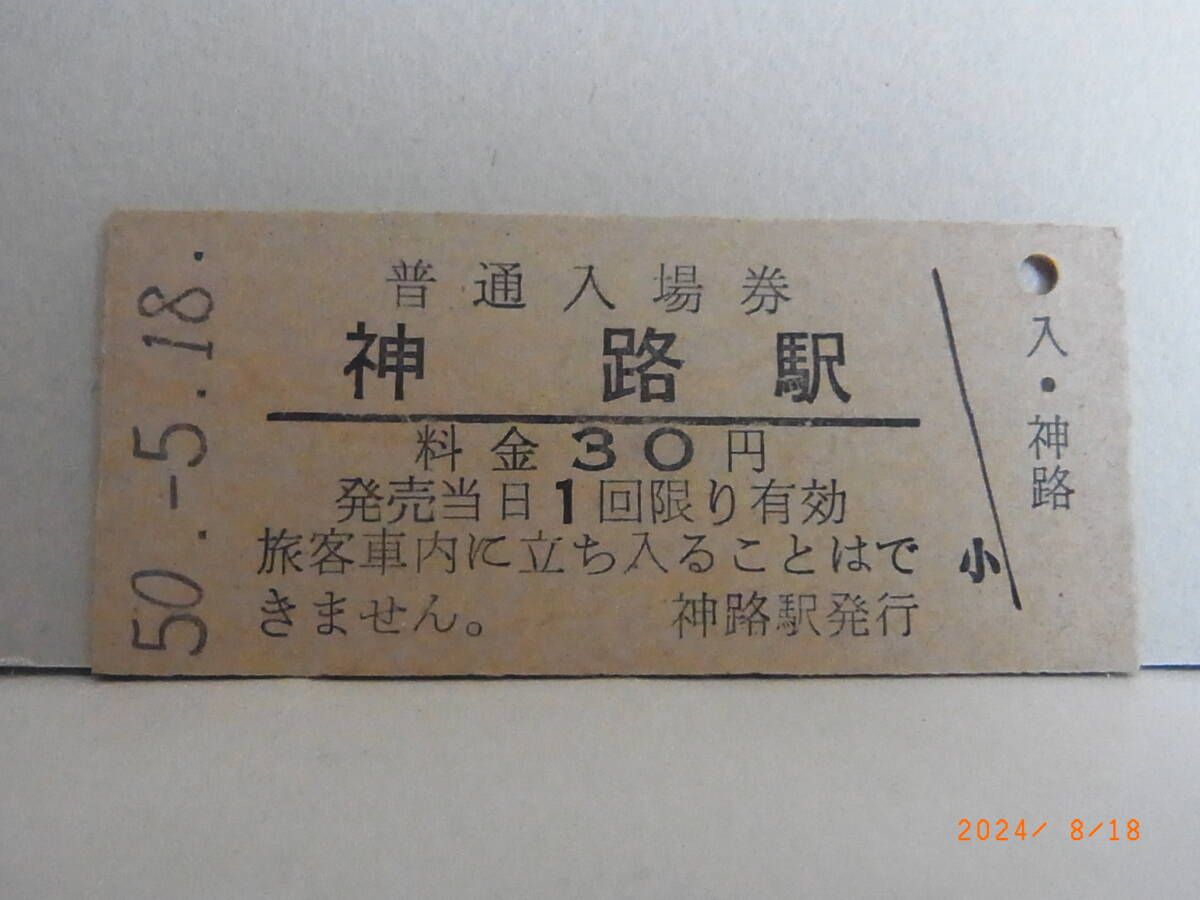 50.-5.18.
普通入場券
神路駅
料金30円
発売当日1回限り有効
旅客車内に立ち入ることはで
きません。 神路駅発行
小
入・神路
2024/ 8/18